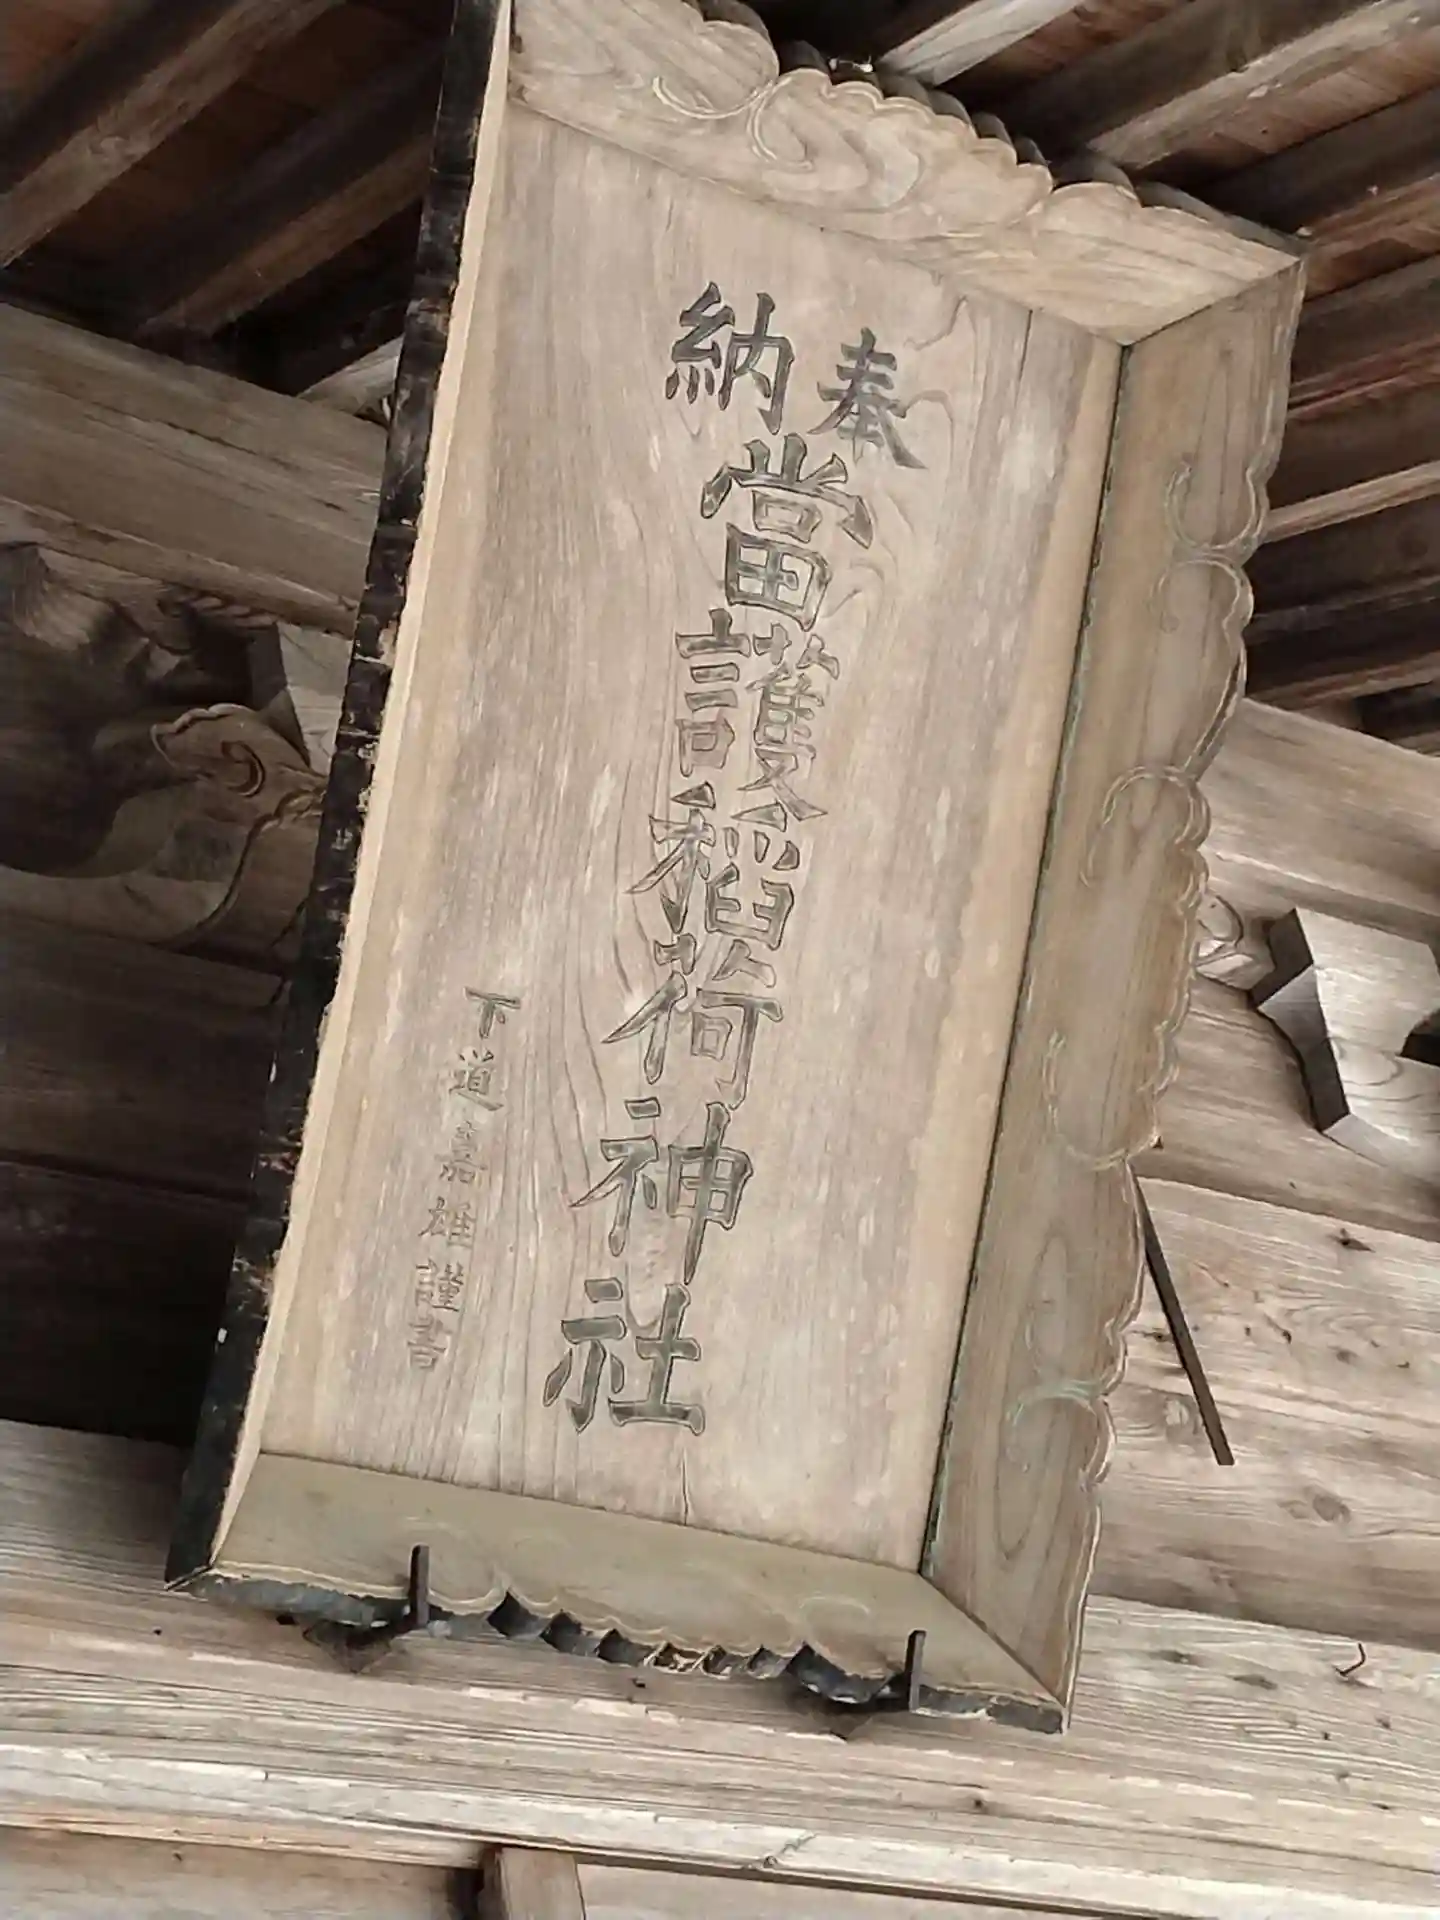 奉納
當護稲荷神社
下道嘉雄謹書